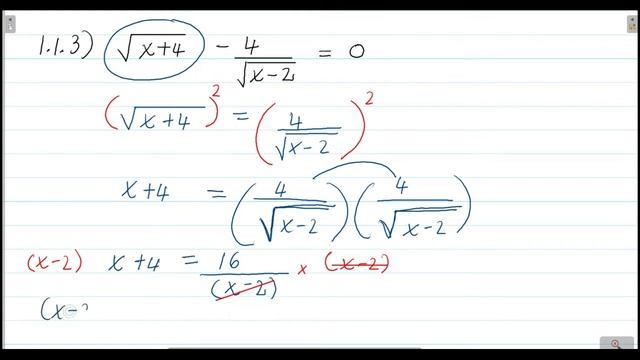 1.1.3) √(x+4) - 4/√(x-2) = 0
(√(x+4))² = (4/√(x-2))²
x+4 = (4/√(x-2))(4/√(x-2))
(x-2) x+4 = 16/(x-2) × (x-2)
(x-2